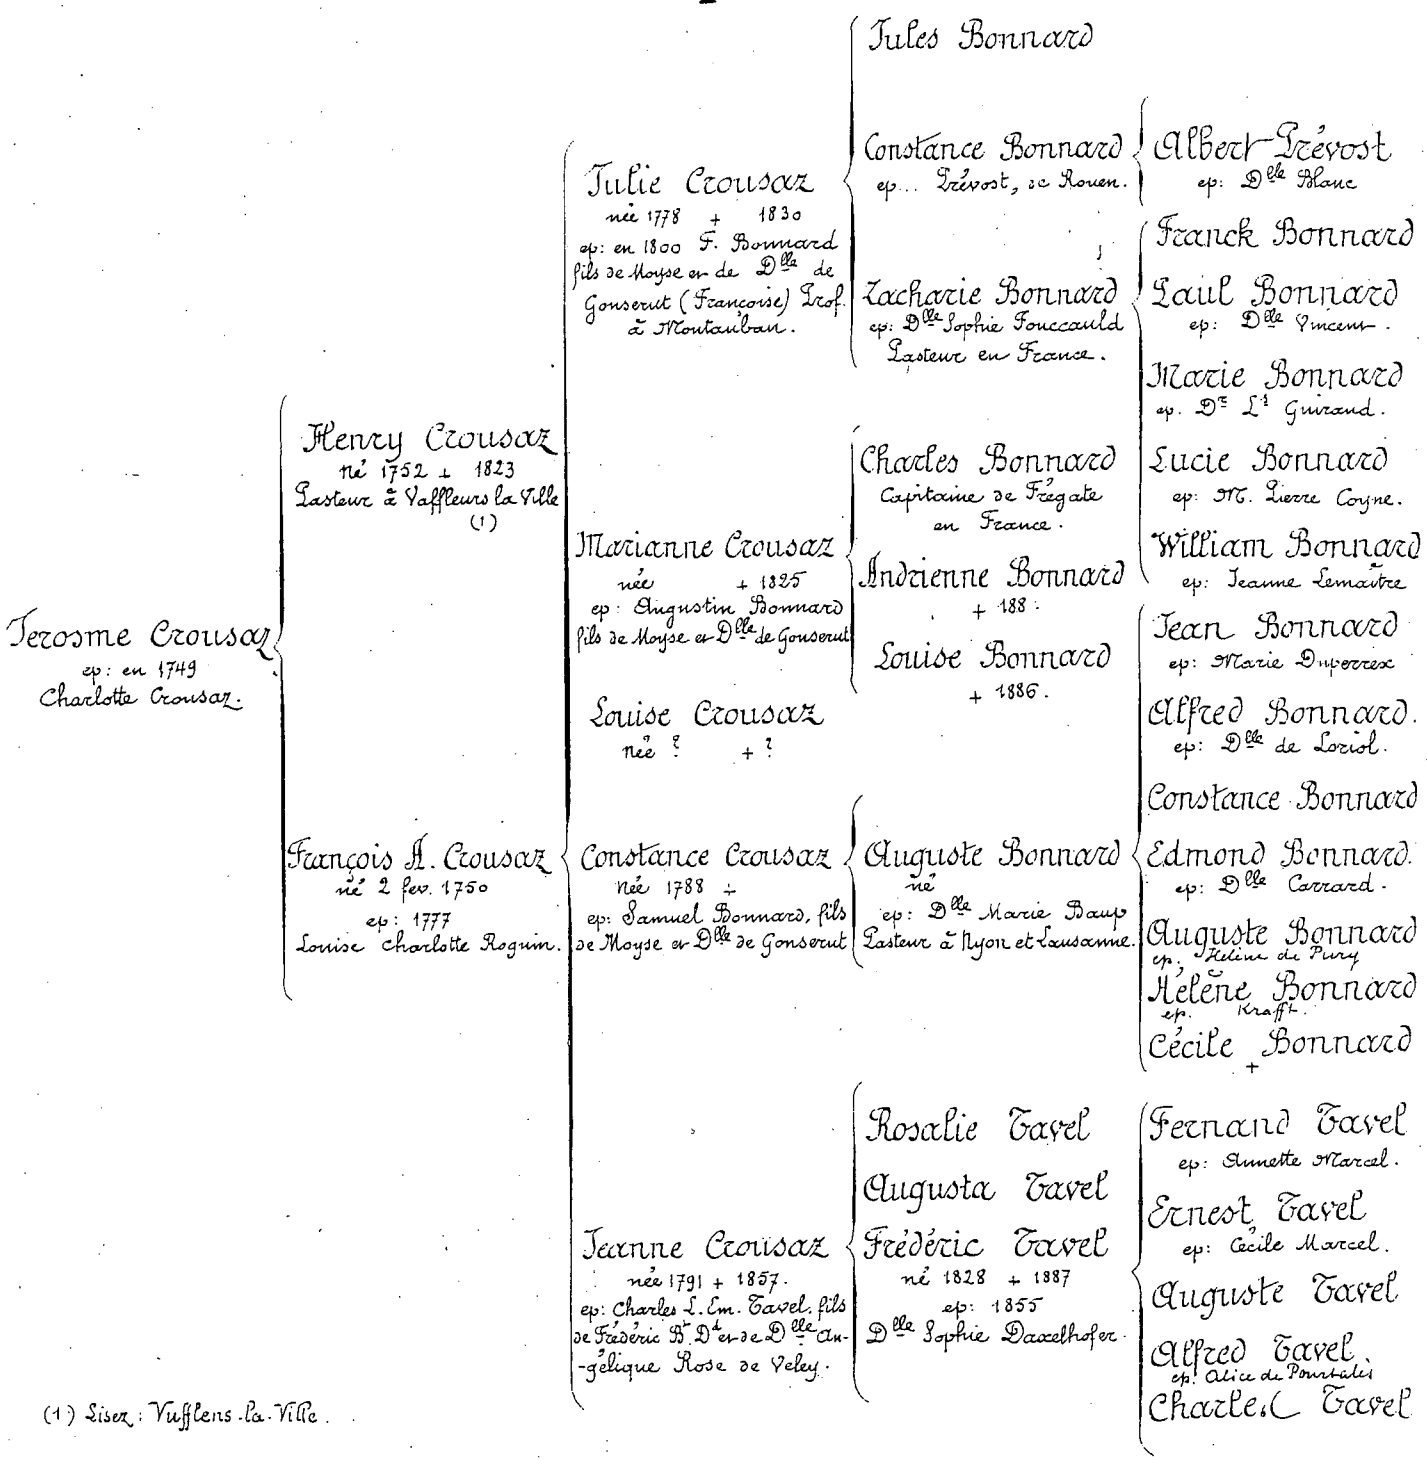 Jerosme Crousaz
ep: en 1749
Charlotte Crousaz.
Henry Crousaz
né 1752 + 1823
Pasteur à Vaffleurs la Ville
(1)
François A. Crousaz
né 2 fev. 1750
ep: 1777
Louise Charlotte Roguin.
Julie Crousaz
née 1778 + 1830
ep: en 1800 F. Bonnard
fils de Moyse et de Dlle de
Gonserut (Françoise) Prof.
à Montauban.
Marianne Crousaz
née + 1825
ep: Augustin Bonnard
fils de Moyse et Dlle de Gonserut
Louise Crousaz
née ? + ?
Constance Crousaz
née 1788 +
ep: Samuel Bonnard, fils
de Moyse et Dlle de Gonserut
Jeanne Crousaz
née 1791 + 1857.
ep: Charles L. Em. Tavel, fils
de Frédéric Bt Dd et de Dlle An-
-gélique Rose de Veley.
Jules Bonnard
Constance Bonnard
ep... Prévost, de Rouen.
Zacharie Bonnard
ep: Dlle Sophie Fouccauld
Pasteur en France.
Charles Bonnard
Capitaine de Frégate
en France.
Andrienne Bonnard
+ 188.
Louise Bonnard
+ 1886.
Auguste Bonnard
né
ep: Dlle Marie Baup
Pasteur à Nyon et Lausanne.
Rosalie Tavel
Augusta Tavel
Frédéric Tavel
né 1828 + 1887
ep: 1855
Dlle Sophie Daxelhofer.
Albert Prévost
ep: Dlle Blanc
Franck Bonnard
Paul Bonnard
ep: Dlle Vincent.
Marie Bonnard
ep. Dr Ls Guiraud.
Lucie Bonnard
ep: M. Pierre Coyne.
William Bonnard
ep: Jeanne Lemaître
Jean Bonnard
ep: Marie Duperrex
Alfred Bonnard.
ep: Dlle de Loriol.
Constance Bonnard
Edmond Bonnard.
ep: Dlle Carrard.
Auguste Bonnard
ep. Hélène de Pury
Hélène Bonnard
ep. Krafft.
Cécile Bonnard
+
Fernand Tavel
ep: Annette Marcel.
Ernest Tavel
ep: Cécile Marcel.
Auguste Tavel
Alfred Tavel.
ep. Alice de Pourtalès
Charles Tavel
(1) Lisez: Vufflens-la-Ville.